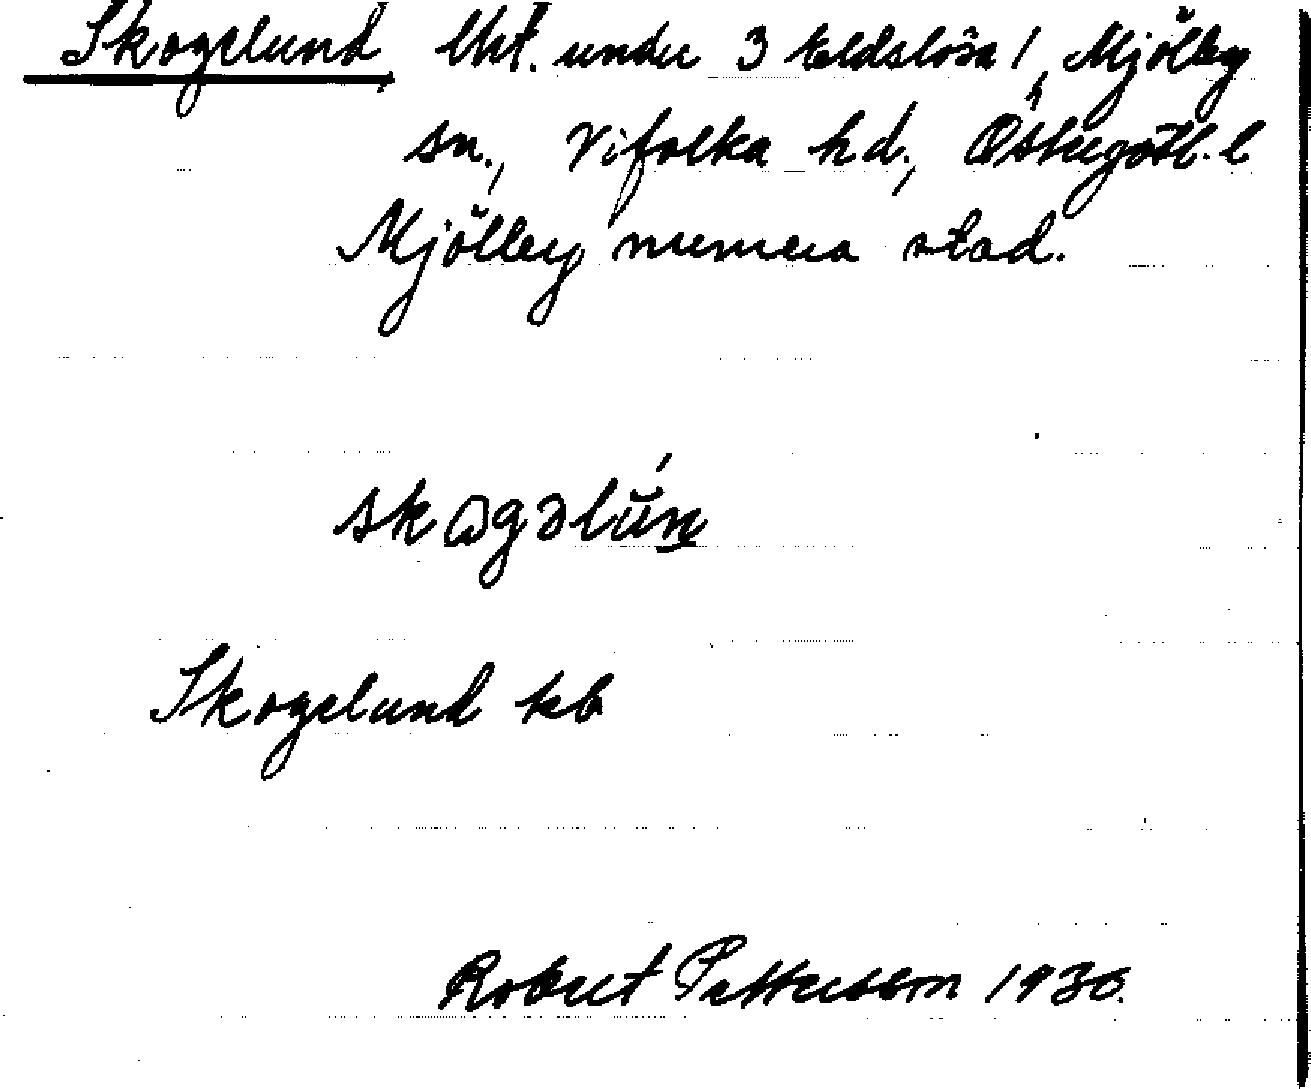 Skogslund, lht. under 3 Eldslösa /, Mjölby
sn., Vifolka hd., Östergötl. l
Mjölby numera stad.
skɷgəlún
Skogslund kb
Robert Pettersson 1930.